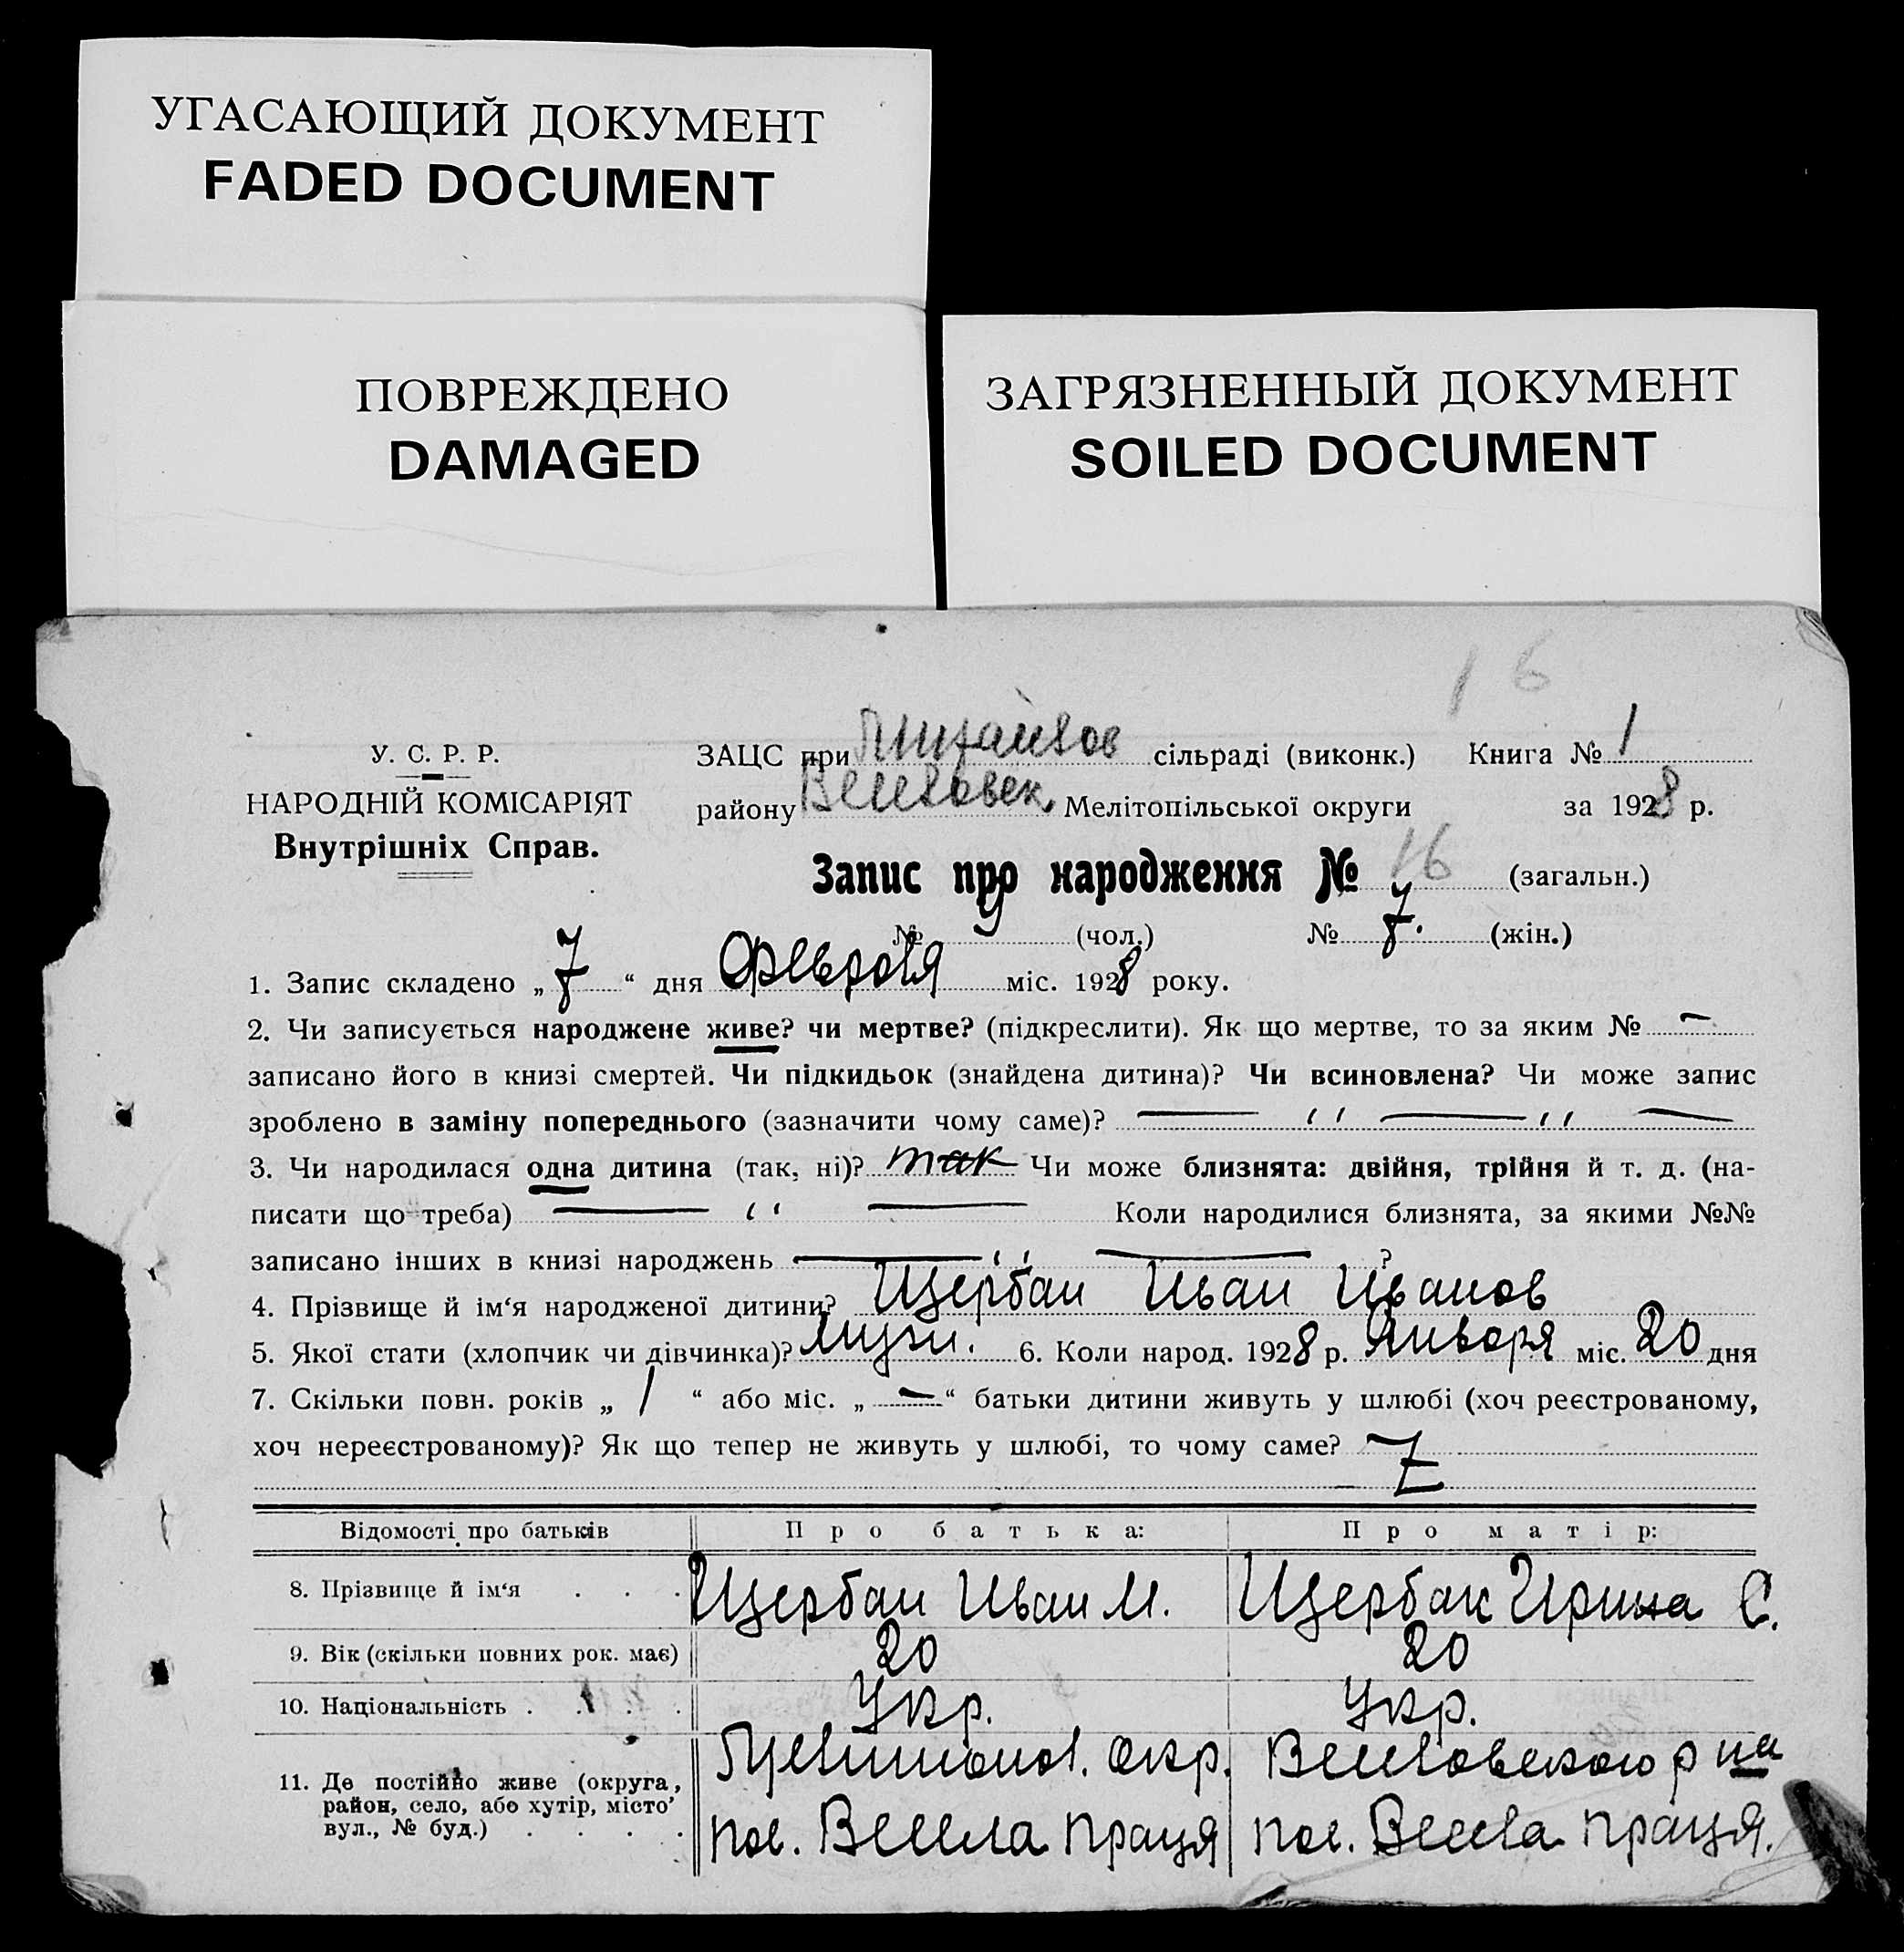 УГАСАЮЩИЙ ДОКУМЕНТ
FADED DOCUMENT
ПОВРЕЖДЕНО
DAMAGED
ЗАГРЯЗНЕННЫЙ ДОКУМЕНТ
SOILED DOCUMENT
16
У. С. Р. Р.
НАРОДНІЙ КОМІСАРІЯТ
Внутрішніх Справ.
ЗАЦС при сільраді (виконк.) Книга № 1
району Мелітопільської округи за 1928 р.
Запис про народження № 16 (загальн.)
№ 9 (чол.) № 7. (жін.)
1. Запис складено „ 7 “ дня Февраля міс. 1928 року.
2. Чи записується народжене живе? чи мертве? (підкреслити). Як що мертве, то за яким № –
записано його в книзі смертей. Чи підкидьок (знайдена дитина)? Чи всиновлена? Чи може запис
зроблено в заміну попереднього (зазначити чому саме)? — ‘‘ — ‘‘ —
3. Чи народилася одна дитина (так, ні)? так Чи може близнята: двійня, трійня й т. д. (на-
писати що треба) — ‘‘ — Коли народилися близнята, за якими №№
записано інших в книзі народжень — ‘‘ — ?
4. Прізвище й ім‘я народженої дитини? Щербак Иван Иванов
5. Якої стати (хлопчик чи дівчинка)? 6. Коли народ. 1928 р. Января міс. 20 дня
7. Скільки повн. років „ 1 “ або міс. „ — “ батьки дитини живуть у шлюбі (хоч реєстрованому,
хоч нереєстрованому)? Як що тепер не живуть у шлюбі, то чому саме?
Відомості про батьків Про батька: Про матір:
8. Прізвище й ім‘я . . . Щербак Иван И. Щербак Ирина С.
9. Вік (скільки повних рок. має) 20 20
10. Національність . . . . Укр. Укр.
11. Де постійно живе (округа, окр. р на
район, село, або хутір, місто’
вул., № буд.) . . . . пос. Весела Праця пос. Весела Праця.